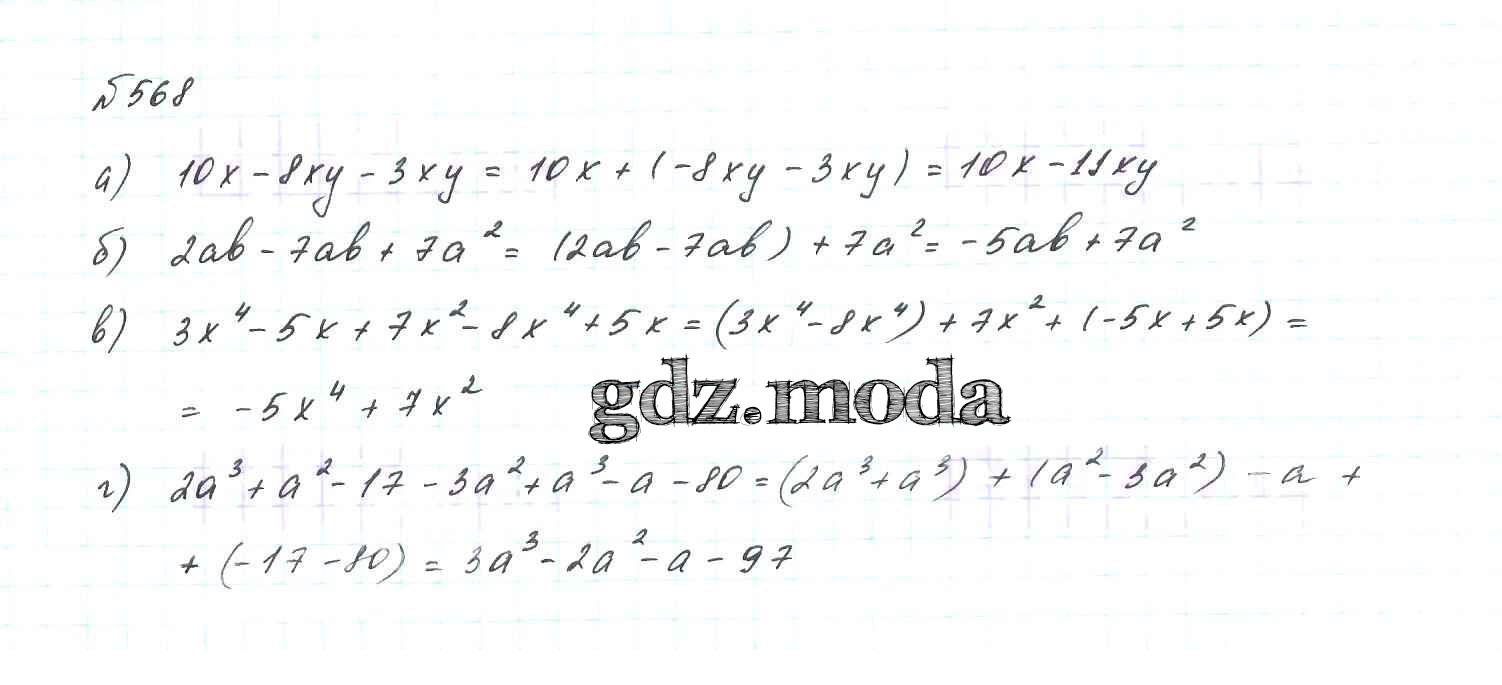 №568
а) 10x - 8xy - 3xy = 10x + (-8xy - 3xy) = 10x - 11xy
б) 2ab - 7ab + 7a² = (2ab - 7ab) + 7a² = -5ab + 7a²
в) 3x⁴ - 5x + 7x² - 8x⁴ + 5x = (3x⁴ - 8x⁴) + 7x² + (-5x + 5x) =
= -5x⁴ + 7x²
gdz.moda
г) 2a³ + a² - 17 - 3a² + a³ - a - 80 = (2a³ + a³) + (a² - 3a²) - a +
+ (-17 - 80) = 3a³ - 2a² - a - 97